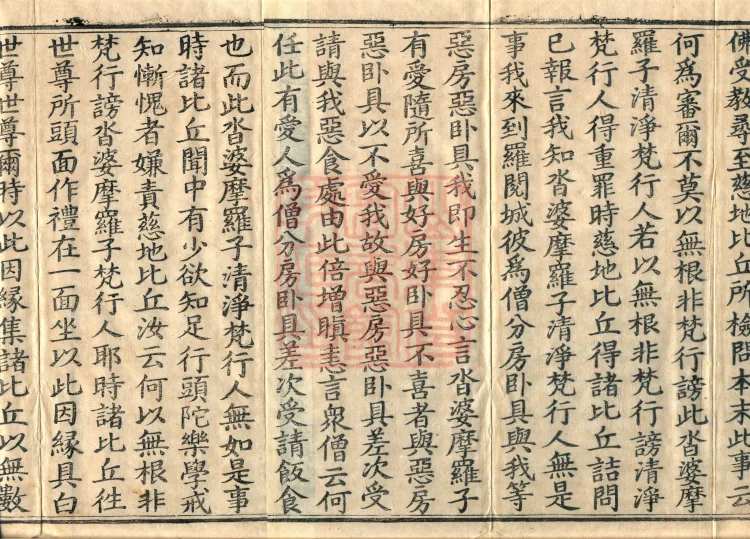 佛受教尋至慈地比丘所檢問本末此事云
何為審爾不莫以無根非梵行謗此沓婆摩
羅子清淨梵行人若以無根非梵行謗清淨
梵行人得重罪時慈地比丘得諸比丘詰問
已報言我知沓婆摩羅子清淨梵行人無是
事我來到羅閱城彼為僧分房卧具與我等
惡房惡卧具我即生不忍心言沓婆摩羅子
有愛隨所喜與好房好卧具不喜者與惡房
惡卧具以不愛我故與惡房惡卧具差次受
請與我惡食處由此倍增瞋恚言衆僧云何
任此有愛人為僧分房卧具差次受請飯食
也而此沓婆摩羅子清淨梵行人無如是事
時諸比丘聞中有少欲知足行頭陀樂學戒
知慚愧者嫌責慈地比丘汝云何以無根非
梵行謗沓婆摩羅子梵行人耶時諸比丘往
世尊所頭面作禮在一面坐以此因緣具白
世尊世尊爾時以此因緣集諸比丘以無數